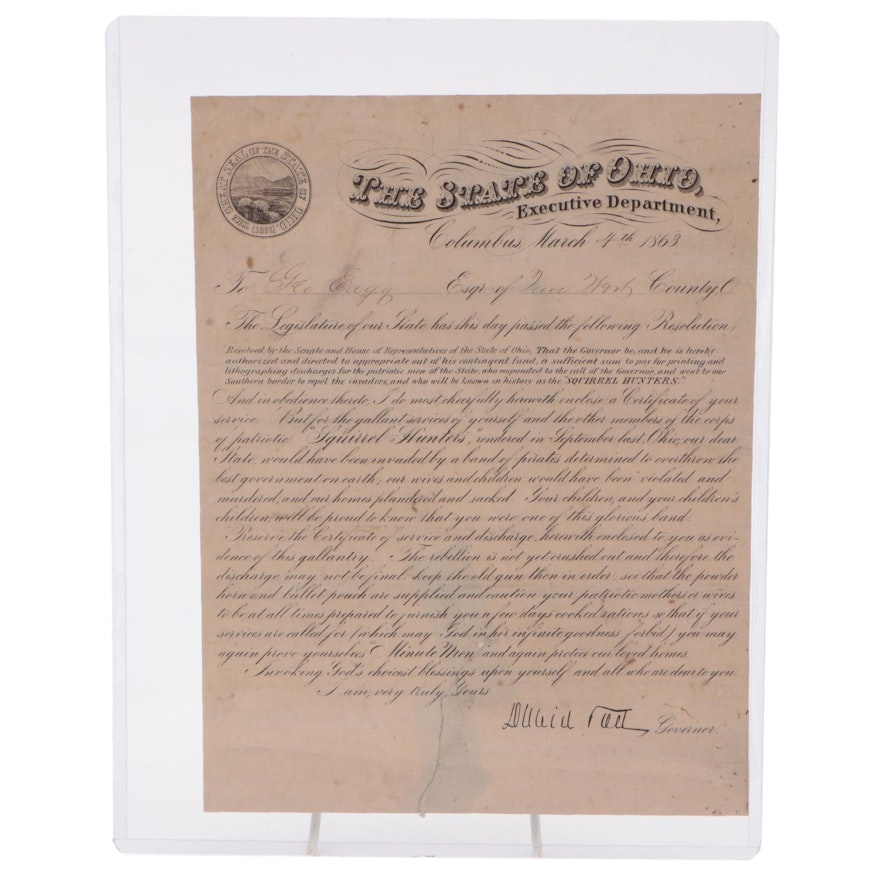 GREAT SEAL OF THE STATE OF OHIO.
THE STATE OF OHIO,
Executive Department,
Columbus, March 4th 1863
To Geo Esqr. of Van Wert County, O.
The Legislature of our State has this day passed the following Resolution;
"Resolved by the Senate and House of Representatives of the State of Ohio, That the Governor be, and he is hereby
authorized and directed to appropriate out of his contingent fund, a sufficient sum to pay for printing and
lithographing discharges for the patriotic men of the State, who responded to the call of the Governor, and went to our
Southern border to repel the invaders, and who will be known in history as the "SQUIRREL HUNTERS."
And in obedience thereto, I do most cheerfully herewith enclose a Certificate of your
service. But for the gallant services of yourself and the other members of the corps
of patriotic "Squirrel Hunters," rendered in September last, Ohio, our dear
State, would have been invaded by a band of pirates determined to overthrow the
best government on earth, our wives and children would have been violated and
murdered, and our homes plundered and sacked. Your children, and your children's
children, will be proud to know that you were one of this glorious band.
Preserve the Certificate of service and discharge, herewith enclosed to you as evi-
dence of this gallantry. The rebellion is not yet crushed out and therefore the
discharge may not be final: keep the old gun then in order; see that the powder
horn and bullet pouch are supplied and caution your patriotic mothers or wives
to be at all times prepared to furnish you a few days cooked rations so that if your
services are called for (which may God in his infinite goodness forbid) you may
again prove yourselves "Minute Men" and again protect our loved homes.
Invoking God's choicest blessings upon yourself and all who are dear to you.
I am, very truly, Yours
David Tod, Governor.